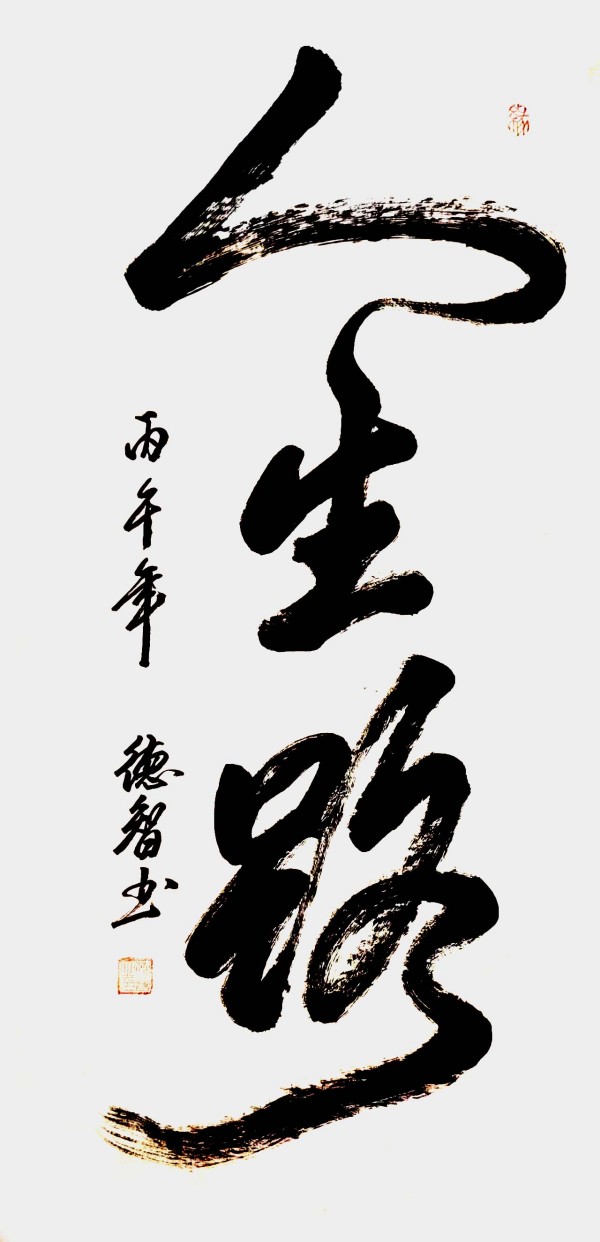 人生路
丙午年 德智书